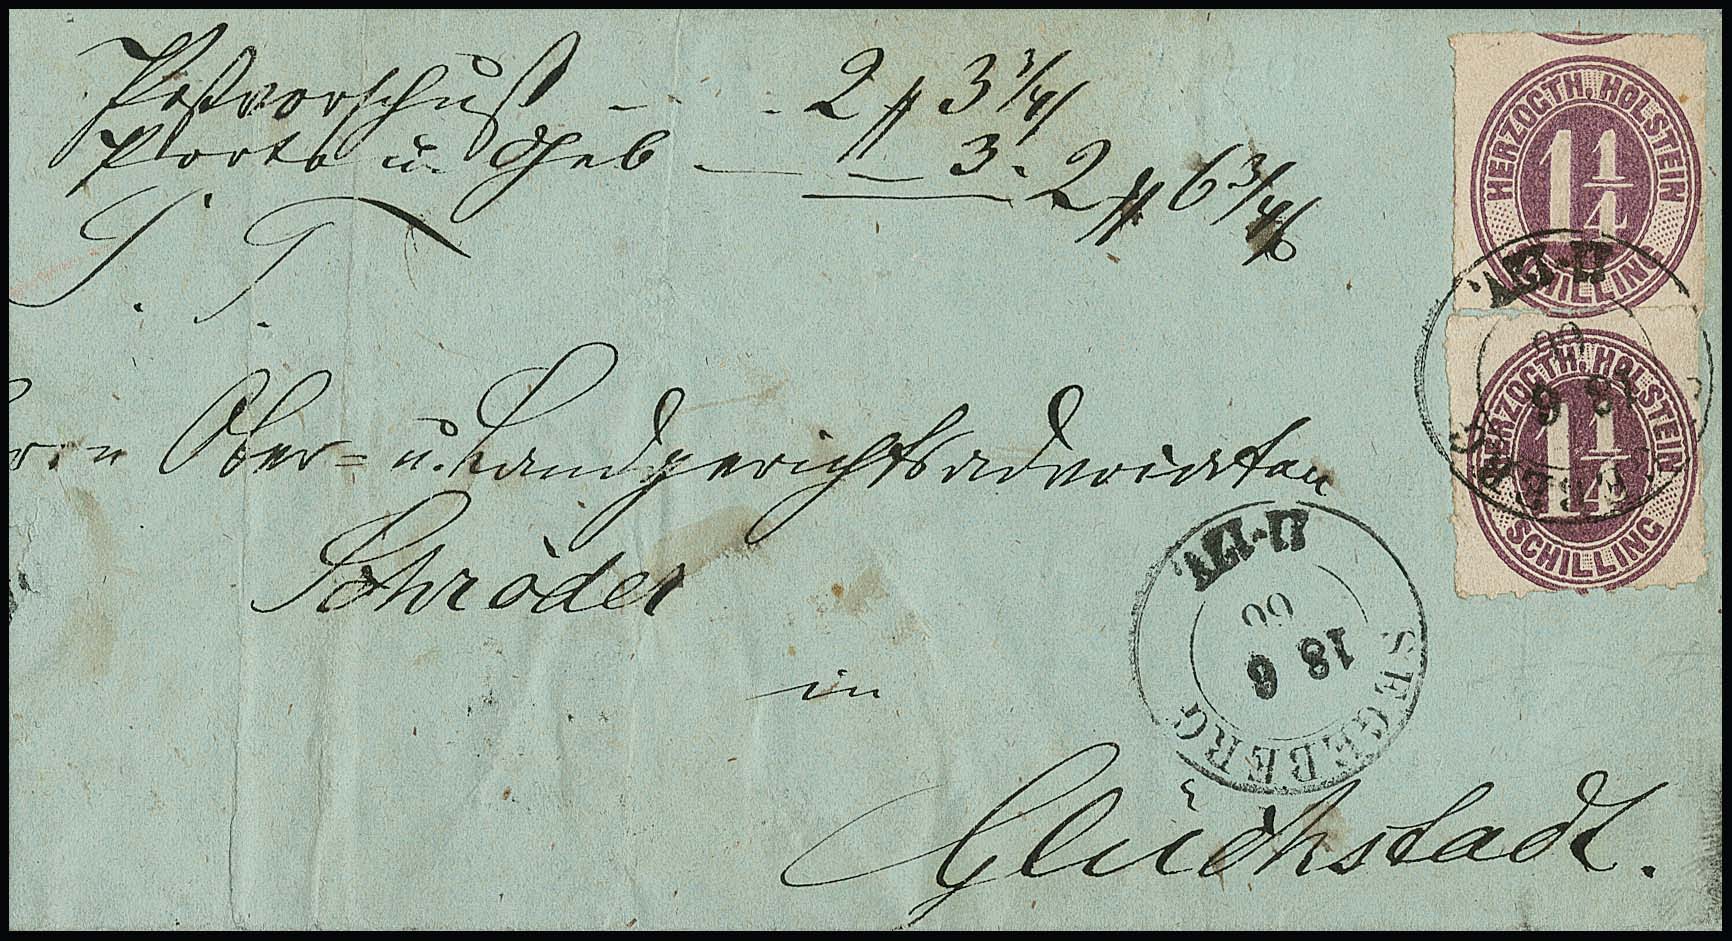 Postvorschuß - - - 2 ₰ 3 3/4 ß
Porto u. Geb - - 3. 2 ₰ 6 3/4 ß
S. T.
Herrn Ober- u. Landgerichtsadvocaten
Schröder
in
Glückstadt.
HERZOGTH. HOLSTEIN
1 1/4
SCHILLING
HERZOGTH. HOLSTEIN
1 1/4
SCHILLING
SEGEBERG
18 6
66
11-12V.